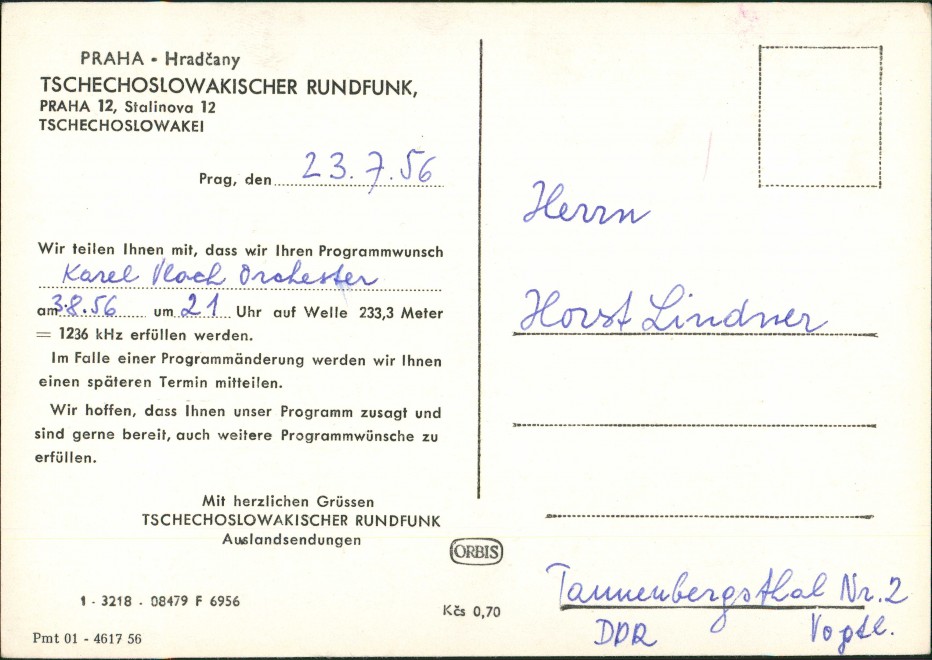 PRAHA - Hradčany
TSCHECHOSLOWAKISCHER RUNDFUNK,
PRAHA 12, Stalinova 12
TSCHECHOSLOWAKEI
Prag, den 23.7.56
Wir teilen Ihnen mit, dass wir Ihren Programmwunsch
Karel Vlach Orchester
am 3.8.56 um 21 Uhr auf Welle 233,3 Meter
= 1236 kHz erfüllen werden.
Im Falle einer Programmänderung werden wir Ihnen
einen späteren Termin mitteilen.
Wir hoffen, dass Ihnen unser Programm zusagt und
sind gerne bereit, auch weitere Programmwünsche zu
erfüllen.
Mit herzlichen Grüssen
TSCHECHOSLOWAKISCHER RUNDFUNK
Auslandsendungen
1 - 3218 - 08479 F 6956
Pmt 01 - 4617 56
ORBIS
Kčs 0,70
Herrn
Horst Lindner
Tannenbergsthal Nr. 2
DDR Vogtl.